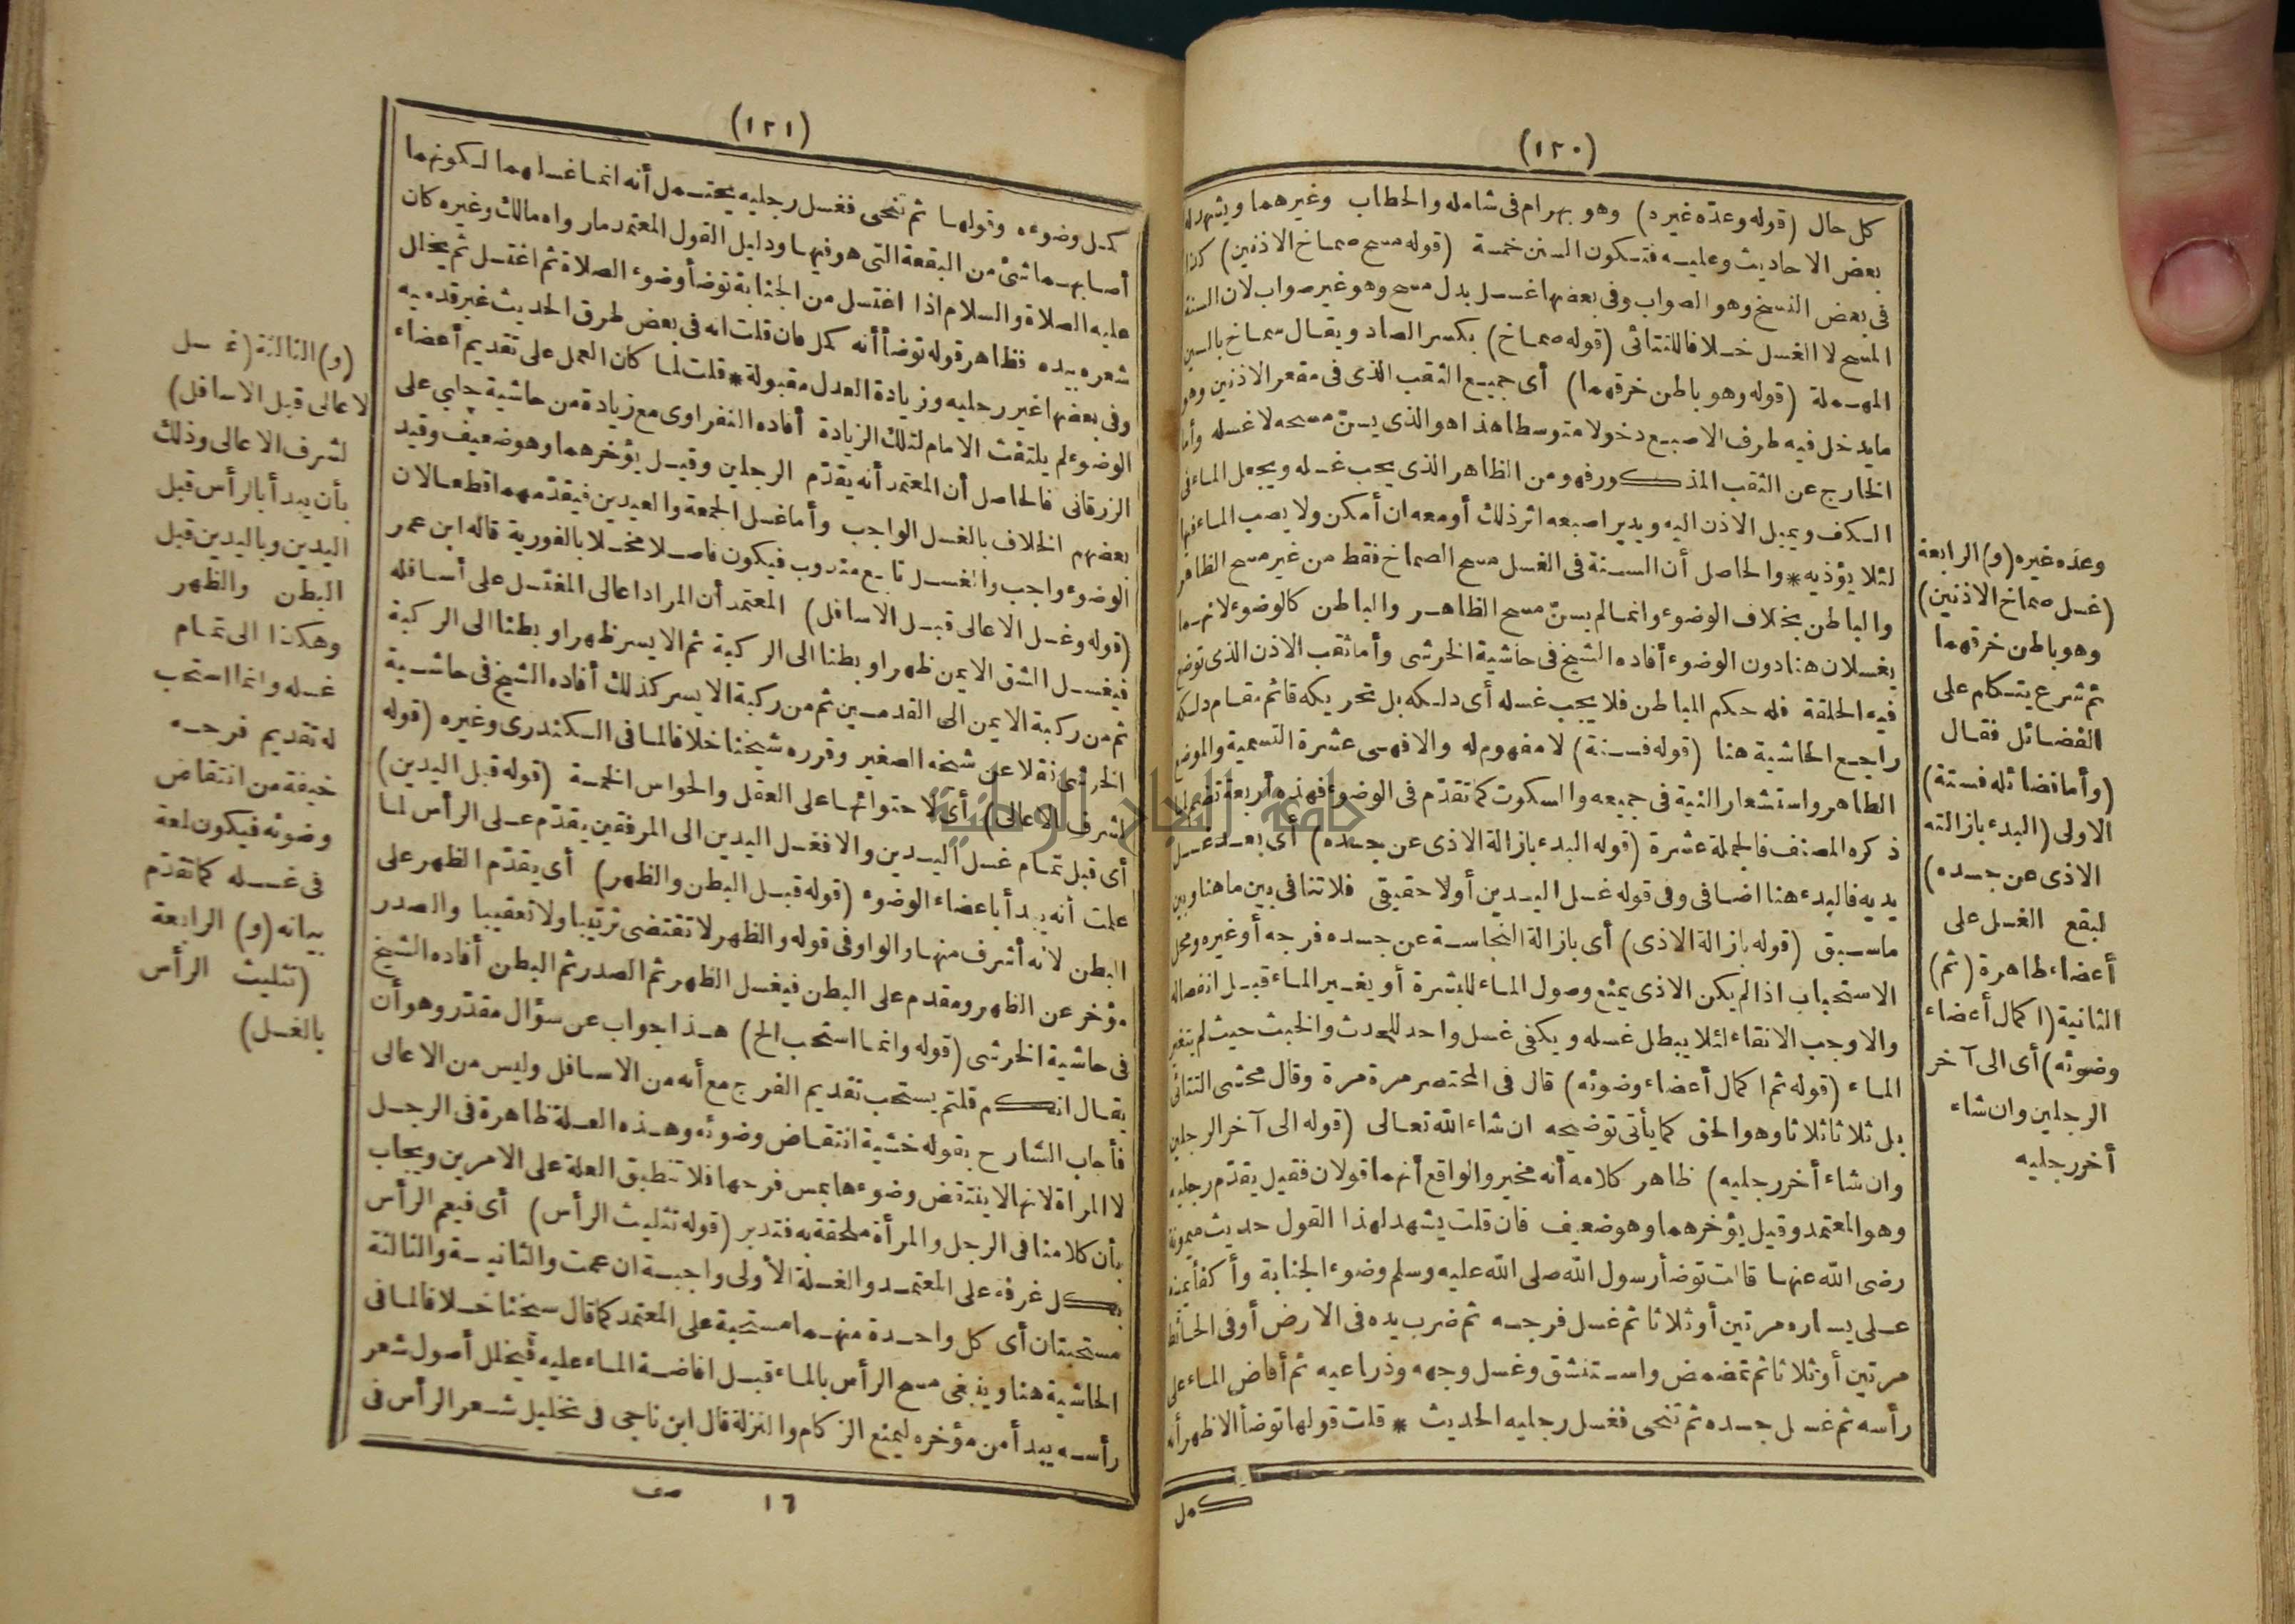 (١٢٠)
كل حال (قوله وعدّه غيره) وهو بهرام فى شامله والحطاب وغيرهما ويشهد له
بعض الاحاديث وعليه فتكون السنن خمسة (قوله مسح صماخ الاذنين) كذا
فى بعض النسخ وهو الصواب وفى بعضها غسل بدل مسح وهو غير صواب لان السنة
المسح لا الغسل خلافا للتتائى (قوله صماخ) بكسر الصاد ويقال سماخ بالسين
المهملة (قوله وهو باطن خرقهما) أى جميع الثقب الذى فى مقعر الاذنين وهو
مايدخل فيه طرف الاصبع دخولا متوسطا هذا هو الذى يسنّ مسحه لا غسله وأما
الخارج عن الثقب المذكور فهو من الظاهر الذى يجب غسله ويجعل الماء فى
الكف ويميل الاذن اليه ويدير اصبعه اثر ذلك أومعه ان أمكن ولا يصب الماء فيها
لئلا يؤذيه * والحاصل أن السنة فى الغسل مسح الصماخ فقط من غير مسح الظاهر
والباطن بخلاف الوضوء وانما لم يسنّ مسح الظاهر والباطن كالوضوء لانهما
يغسلان هنا دون الوضوء أفاده الشيخ فى حاشية الخرشى وأما ثقب الاذن الذى توضع
فيه الحلقة فله حكم الباطن فلا يجب غسله أى دلكه بل تحريكه قائم مقام دلكه
راجع الحاشية هنا (قوله فستة) لا مفهوم له والا فهى عشرة التسمية والموضع
الطاهر واستشعار النية فى جميعه والسكوت كما تقدّم فى الوضوء فهذه أربعة تضم لما
ذكره المصنف فالجملة عشرة (قوله البدء بازالة الاذى عن جسده) أى بعد غسل
يديه فالبدء هنا اضافى وفى قوله غسل اليدين أولا حقيقى فلا تنافى بين ما هنا وبين
ما سبق (قوله بازالة الاذى) أى بازالة النجاسة عن جسده فرجه أوغيره ومحل
الاستحباب اذا لم يكن الاذى يمنع وصول الماء للبشرة أو يغير الماء قبل انفصاله
والا وجب الانقاء لئلا يبطل غسله ويكفى غسل واحد للحدث والخبث حيث لم يتغير
الماء (قوله ثم اكمال أعضاء وضوئه) قال فى المختصر مرة مرة وقال محشى التتائى
بل ثلاثا ثلاثا وهو الحق كما يأتى توضيحه ان شاء الله تعالى (قوله الى آخر الرجلين
وان شاء أخر رجليه) ظاهر كلامه أنه مخير والواقع أنهما قولان فقيل يقدّم رجليه
وهو المعتمد وقيل يؤخرهما وهو ضعيف فان قلت يشهد لهذا القول حديث ميمونة
رضى الله عنها قالت توضأ رسول الله صلى الله عليه وسلم وضوء الجنابة وأكفأ يمينه
على يساره مرتين أو ثلاثا ثم غسل فرجه ثم ضرب يده فى الارض أو فى الحائط
مرتين أو ثلاثا ثم تمضمض واستنشق وغسل وجهه وذراعيه ثم أفاض الماء على
رأسه ثم غسل جسده ثم تنحى فغسل رجليه الحديث * قلت قولها توضأ الاظهر أنه
كمل
وعدّه غيره (و) الرابعة
(غسل صماخ الاذنين)
وهو باطن خرقهما
ثم شرع يتكلم على
الفضائل فقال
(وأما فضائله فستة)
الاولى (البدء بازالته
الاذى عن جسده)
ليقع الغسل على
أعضاء طاهرة (ثم)
الثانية (اكمال أعضاء
وضوئه) أى الى آخر
الرجلين وان شاء
أخر رجليه
(١٢١)
كمل وضوءه وقولها ثم تنحى فغسل رجليه يحتمل أنه انما غسلهما لكونهما
أصابهما شئ من البقعة التى هو فيها ودليل القول المعتمد مارواه مالك وغيره كان
عليه الصلاة والسلام اذا اغتسل من الجنابة توضأ وضوء الصلاة ثم اغتسل ثم يخلل
شعره بيده فظاهر قوله توضأ أنه كمل فان قلت انه فى بعض طرق الحديث غير قدميه
وفى بعضها غير رجليه وزيادة العدل مقبولة * قلت لما كان العمل على تقديم أعضاء
الوضوء لم يلتفت الامام لتلك الزيادة أفاده النفراوى مع زيادة من حاشية چلبى على
الزرقانى فالحاصل أن المعتمد أنه يقدّم الرجلين وقيل يؤخرهما وهو ضعيف وقيد
بعضهم الخلاف بالغسل الواجب وأما غسل الجمعة والعيدين فيقدّمهما قطعا لان
الوضوء واجب والغسل تابع مندوب فيكون فاصلا مخلا بالفورية قاله ابن عمر
(قوله وغسل الاعالى قبل الاسافل) المعتمد أن المراد اعالى المغتسل على أسافله
فيغسل الشق الايمن ظهرا وبطنا الى الركبة ثم الايسر ظهرا وبطنا الى الركبة
ثم من ركبة الايمن الى القدمين ثم من ركبة الايسر كذلك أفاده الشيخ فى حاشية
الخرشى نقلا عن شيخه الصغير وقرره شيخنا خلافا لما فى السكندرى وغيره (قوله
لشرف الاعالى) أى لاحتوائها على العقل والحواس الخمسة (قوله قبل اليدين)
أى قبل تمام غسل اليدين والا فغسل اليدين الى المرفقين يقدّم على الرأس لما
علمت أنه يبدأ بأعضاء الوضوء (قوله قبل البطن والظهر) أى يقدّم الظهر على
البطن لانه أشرف منها والواو فى قوله والظهر لا تقتضى ترتيبا ولا تعقيبا والصدر
مؤخر عن الظهر ومقدم على البطن فيغسل الظهر ثم الصدر ثم البطن أفاده الشيخ
فى حاشية الخرشى (قوله وانما استحب الخ) هذا جواب عن سؤال مقدّر وهو أن
يقال انكم قلتم يستحب تقديم الفرج مع أنه من الاسافل وليس من الاعالى
فأجاب الشارح بقوله خشية انتقاض وضوئه وهذه العلة ظاهرة فى الرجل
لا المرأة لانها لا ينتقض وضوءها بمس فرجها فلا تنطبق العلة على الامرين ويجاب
بأن كلامنا فى الرجل والمرأة ملحقة به فتدبر (قوله تثليث الرأس) أى فيعم الرأس
بكل غرفة على المعتمد والغسلة الأولى واجبة ان عمت والثانية والثالثة
مستحبتان أى كل واحدة منهما مستحبة على المعتمد كما قال شيخنا خلافا لما فى
الحاشية هنا وينبغى مسح الرأس بالماء قبل افاضة الماء عليه فيخلل أصول شعر
رأسه يبدأ من مؤخره ليمنع الزكام والنزلة قال ابن ناجى فى تخليل شعر الرأس فى
١٦ صف
(و) الثالثة (غسل
لاعالى قبل الاسافل)
لشرف الاعالى وذلك
بأن يبدأ بالرأس قبل
اليدين وباليدين قبل
البطن والظهر
وهكذا الى تمام
غسله وانما استحب
له تقديم فرجه
خيفة من انتقاض
وضوئه فيكون لمعة
فى غسله كما تقدّم
بيانه (و) الرابعة
(تثليث الرأس
بالغسل)
جامعة النجاح الوطنية